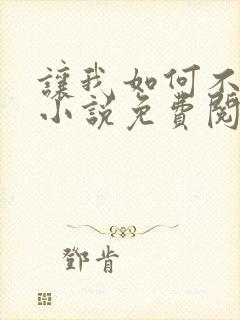 讓我如何不
小說免費閱
鄧肯